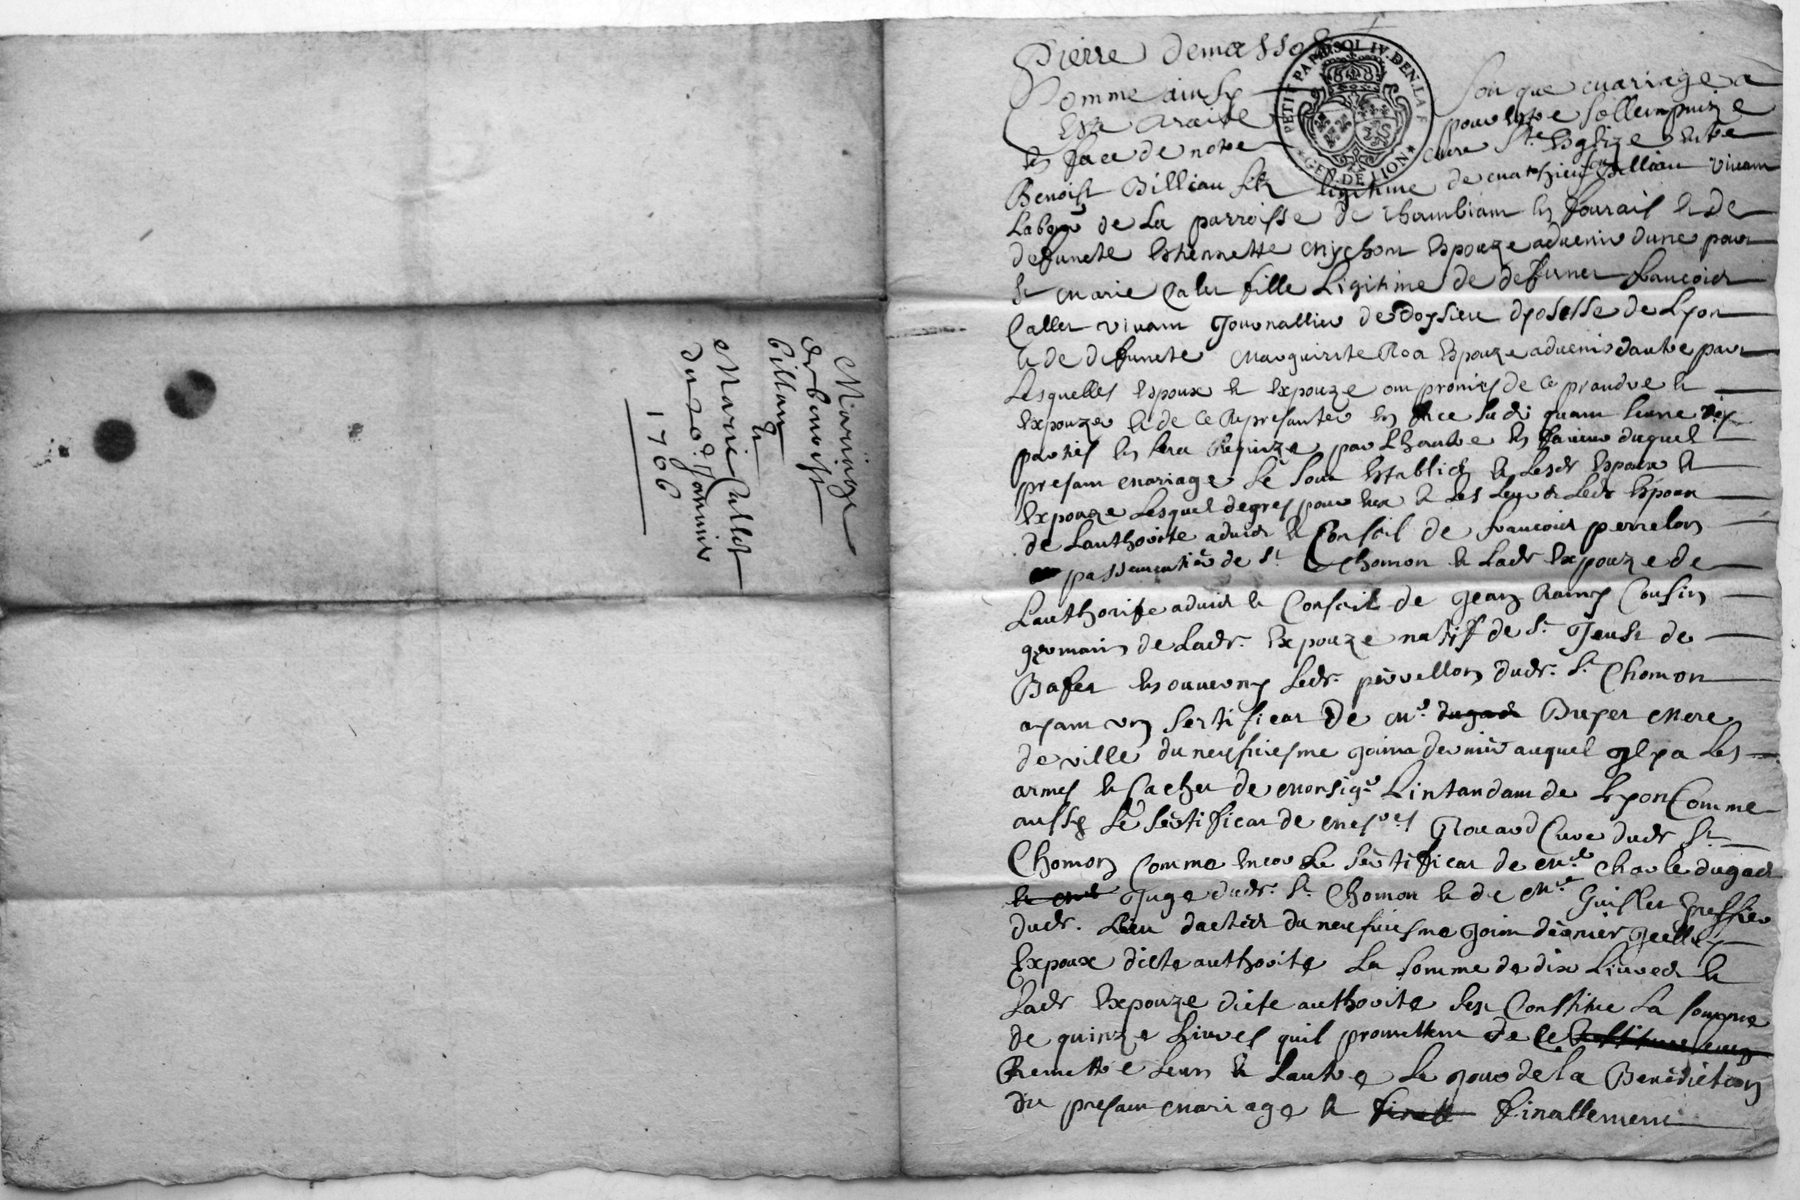 Mariage
de benoist
billiau
et
Marie Callet
du 20e Janvier
1706
Pierre demasso
PETIT PAP. 1 SOL IV. DEN. LA F.
GEN. DE LION
Comme ainsy soit que mariage a
este traite pour estre sollempnize
en face de notre mere Ste Esglize entre
Benoist Billiau filz ligitime de Billiau vivant
Labour de La parroisse de Chambiam en fourais et de
defuncte Estiennette Mychon Espouze advenir dune part
Et Marie Calet fille Ligitime de defunct francois
Callet vivant Journallier de doysieu dyosesse de Lyon
et de defuncte Marguirite Roa Espouze advenir dautre part
Lesquelles Espoux et Expouze ont promis de ce prandre et
Expouzer et de ce Represanter en face ludi quant lune des
parties en sera Requize par Lhautre en faveur duquel
presant mariage se sont Establies et Lesdt Espoux et
Expouze Lesquel degres pour eux et Les Leur et Ledt Espoux
de Lauthorite advis et Conseil de francois perrelon
passementier de St Chomon et Ladt Expouze de
Lauthorite advis et Conseil de Jean Ramy Cousin
germain de Ladt Expouze natif de St Jeust de
Bafet Ledt perrellon dudt St Chomon
ayant un sertificat de Mr Buyet Mere
de ville du neufviesme Joint dernier auquel Il y a Les
armes et Cachet de Monsigr Lintandant de Lyon Comme
aussy Le sertificat de Mesres Cure dudt St
Chomon Comme encor Le sertificat de Mre Charle dugad
Juge dudt St Chomon et de Mre Guillet Greffier
dudt Lieu dactes du neufviesme Join dernier
Expoux dicte authorite La somme de dix Livres et
Ladt Expouze dicte authorite sen Constitue La somme
de quinze Livres quil promettent de ce
Remettre Lun et Lautre Le Jour de la Benediction
du presant mariage et finallement